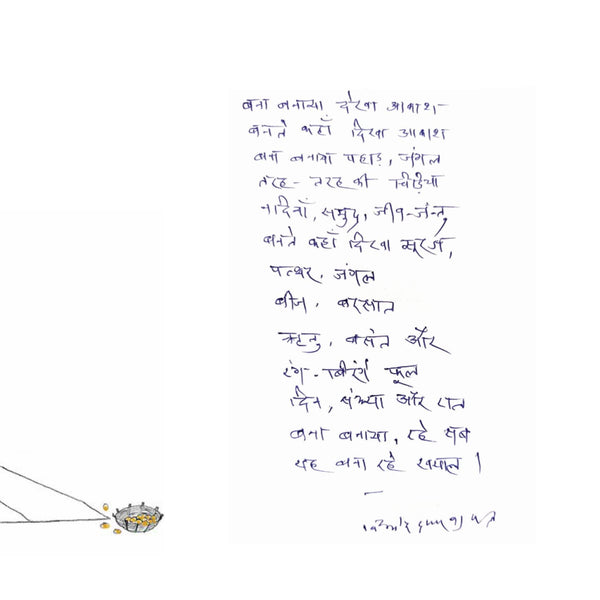 बना बनाया देखा आकाश
बनते कहाँ दिखा आकाश
बना बनाया पहाड़, जंगल
तरह-तरह की चिड़िया
नदियाँ, समुद्र, जीव-जन्तु
बनते कहाँ दिखा सूरज,
पत्थर, जंगल
बीज, बरसात
ऋतु, बसंत और
रंग-बिरंगे फूल
दिन, संध्या और रात
बना बनाया, रहे सब
यह बना रहे खयाल।